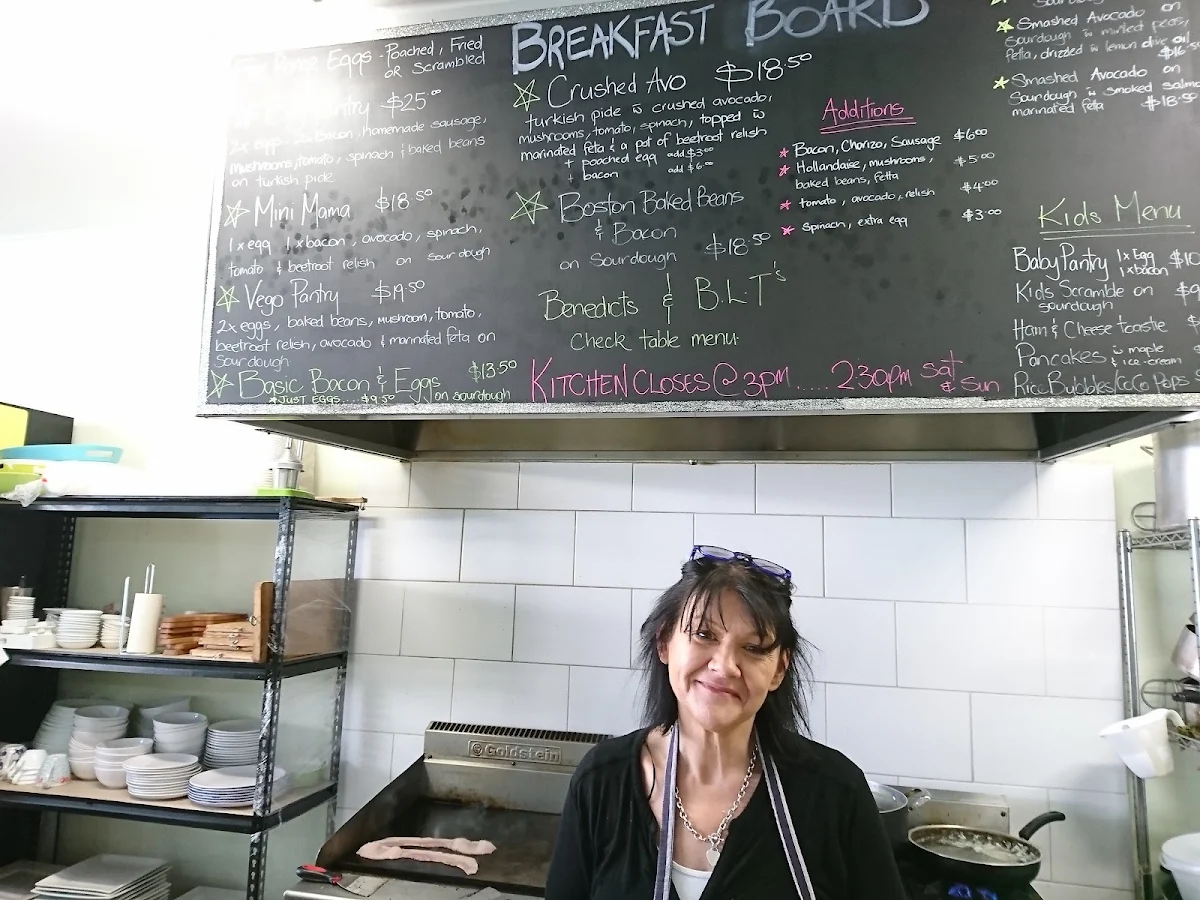 Eggs - Poached, Fried
or Scrambled
Pantry $25.00
2x egg, 2x Bacon, homemade sausage,
mushrooms, tomato, spinach & baked beans
on turkish pide
Mini Mama $18.50
1x egg 1x bacon, avocado, spinach,
tomato & beetroot relish on Sour dough
Vego Pantry $19.50
2x eggs, baked beans, mushroom, tomato,
beetroot relish, avocado & marinated feta on
Sourdough
Basic Bacon & Eggs $13.50
*JUST EGGS....$9.50 on sourdough
BREAKFAST BOARD
Crushed Avo $18.50
turkish pide w crushed avocado,
mushrooms, tomato, spinach, topped w
marinated feta & a pot of beetroot relish
+ poached egg add $3.00
+ bacon add $6.00
Boston Baked Beans
& Bacon
on Sourdough $18.50
Benedicts & B.L.T's
Check table menu.
KITCHEN CLOSES @ 3PM.....2:30pm Sat
& Sun
Additions
Bacon, Chorizo, Sausage $6.00
Hollandaise, mushrooms, $5.00
baked beans, fetta
tomato, avocado, relish $4.00
Spinach, extra egg $3.00
Sourdough
Smashed Avocado on
Sourdough w minted peas,
feta, drizzled w lemon olive oil
Smashed Avocado on
Sourdough w smoked salmon
marinated feta $18.50
Kids Menu
Baby Pantry 1x Egg $10
1x bacon
Kids Scramble on $9
sourdough
Ham & Cheese Toastie $
Pancakes w maple
& ice-cream
Rice Bubbles/CoCo Pops $
Goldstein